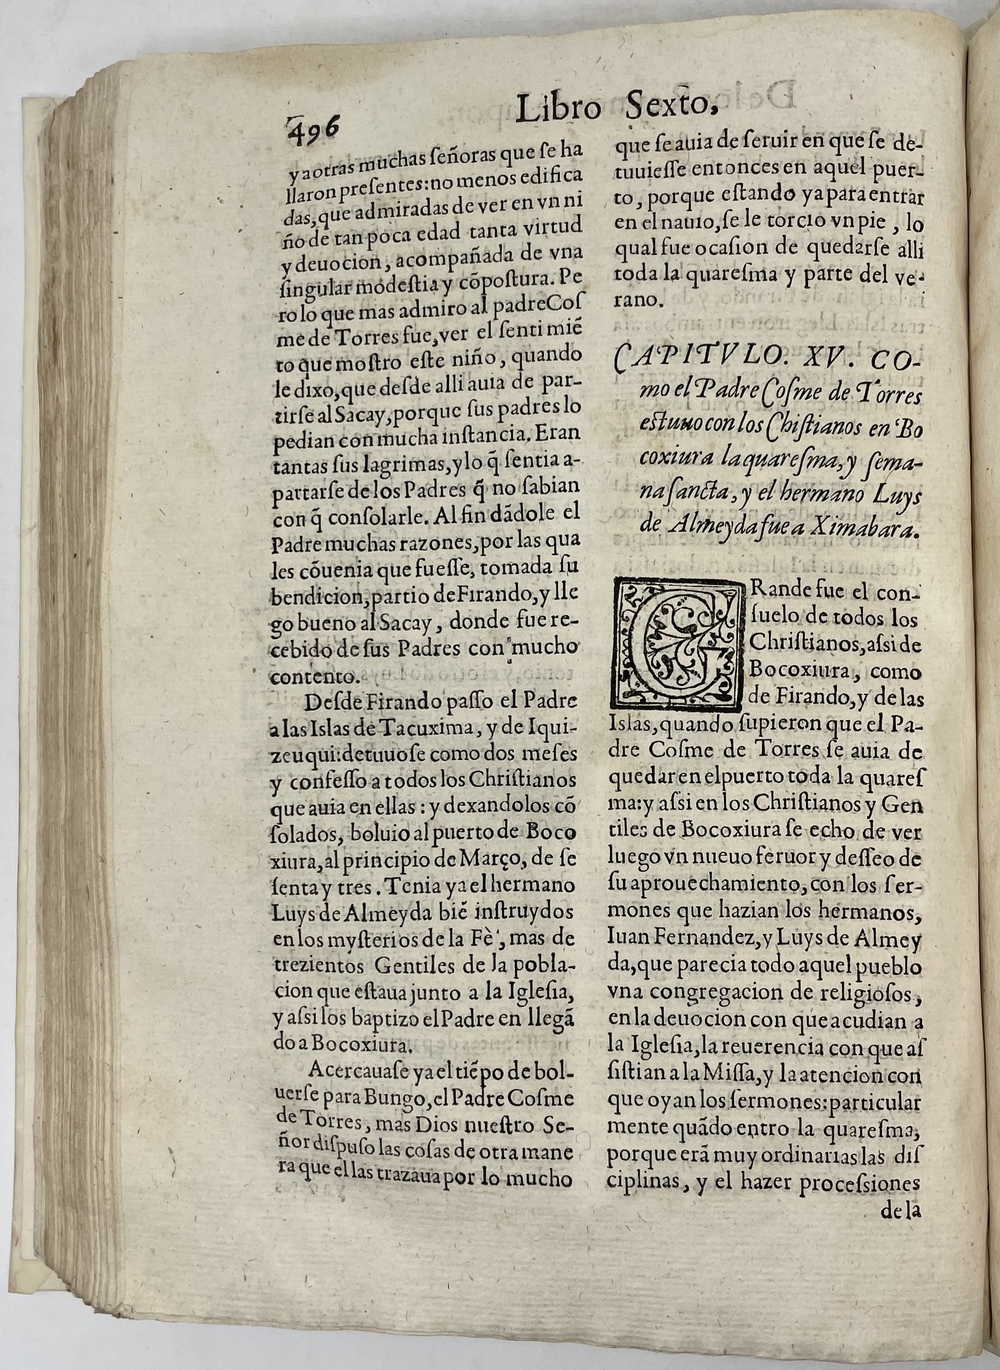 496
Libro Sexto,
y a otras muchas señoras que se ha
llaron presentes: no menos edifica
das, que admiradas de ver en vn ni
ño de tan poca edad tanta virtud
y deuocion, acompañada de vna
singular modestia y cõpostura. Pe
ro lo que mas admiro al padre Cos
me de Torres fue, ver el senti miẽ
to que mostro este niño, quando
le dixo, que desde alli auia de par-
tirse al Sacay, porque sus padres lo
pedian con mucha instancia. Eran
tantas sus lagrimas, y lo q̃ sentia a-
partarse de los Padres q̃ no sabian
con q̃ consolarle. Al fin dãdole el
Padre muchas razones, por las qua
les cõuenia que fuesse, tomada su
bendicion, partio de Firando, y lle
go bueno al Sacay, donde fue re-
cebido de sus Padres con mucho
contento.
Desde Firando passo el Padre
a las Islas de Tacuxima, y de Iqui-
zeuqui: detuuose como dos meses
y confesso a todos los Christianos
que auia en ellas: y dexandolos cõ
solados, boluio al puerto de Boco
xiura, al principio de Março, de se
senta y tres. Tenia ya el hermano
Luys de Almeyda biẽ instruydos
en los mysterios de la Fè, mas de
trezientos Gentiles de la pobla-
cion que estaua junto a la Iglesia,
y assi los baptizo el Padre en llegã
do a Bocoxiura.
Acercauase ya el tiẽpo de bol-
uerse para Bungo, el Padre Cosme
de Torres, mas Dios nuestro Se-
ñor dispuso las cosas de otra mane
ra que ellas trazaua por lo mucho
que se auia de seruir en que se de-
tuuiesse entonces en aquel puer-
to, porque estando ya para entrar
en el nauio, se le torcio vn pie, lo
qual fue ocasion de quedarse alli
toda la quaresma y parte del ve-
rano.
CAPITVLO. XV. CO-
mo el Padre Cosme de Torres
estuuo con los Chistianos en Bo
coxiura la quaresma, y sema-
na sancta, y el hermano Luys
de Almeyda fue a Ximabara.
GRande fue el con-
suelo de todos los
Christianos, assi de
Bocoxiura, como
de Firando, y de las
Islas, quando supieron que el Pa-
dre Cosme de Torres se auia de
quedar en el puerto toda la quares
ma: y assi en los Christianos y Gen
tiles de Bocoxiura se echo de ver
luego vn nueuo feruor y desseo de
su aprouechamiento, con los ser-
mones que hazian los hermanos,
Iuan Fernandez, y Luys de Almey
da, que parecia todo aquel pueblo
vna congregacion de religiosos,
en la deuocion con que acudian a
la Iglesia, la reuerencia con que as
sistian a la Missa, y la atencion con
que oyan los sermones: particular
mente quãdo entro la quaresma,
porque erã muy ordinarias las dis
ciplinas, y el hazer processiones
de la